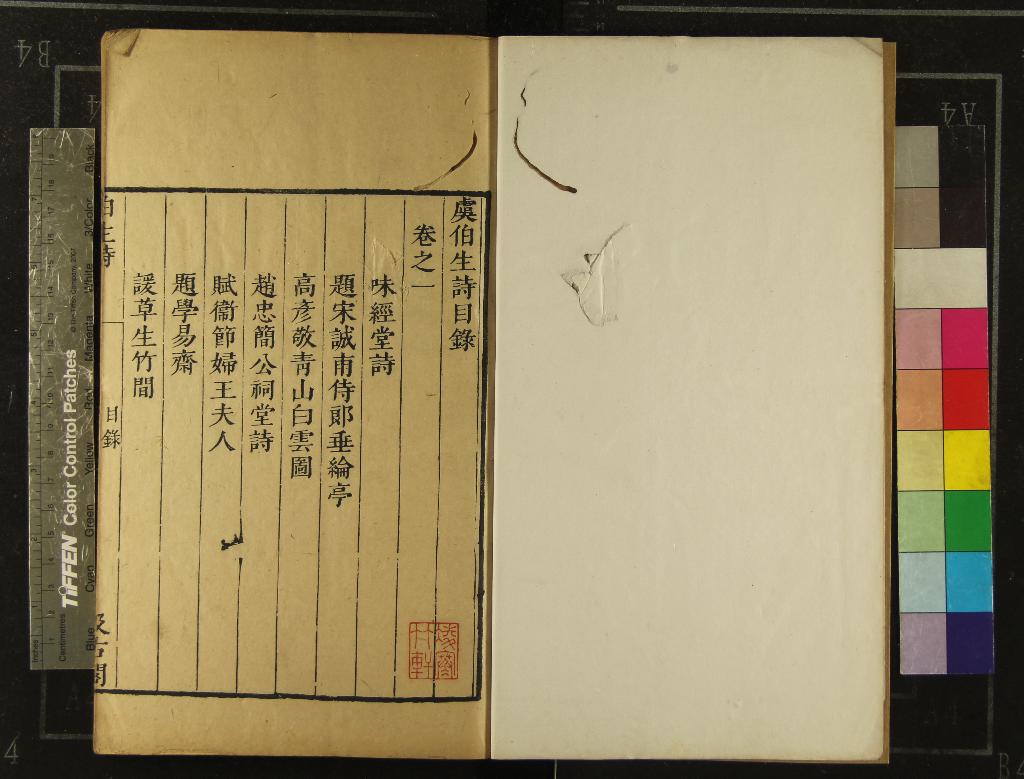 虞伯生詩目錄
卷之一
味經堂詩
題宋誠甫侍郎垂綸亭
高彥敬青山白雲圖
趙忠簡公祠堂詩
賦衞節婦王夫人
題學易齋
諼草生竹間
伯生詩
目錄
汲古閣
TIFFEN Color Control Patches
© The Tiffen Company, 2007
Inches
Centimetres
Blue
Cyan
Green
Yellow
Red
Magenta
White
3/Color
Black
B4
A4